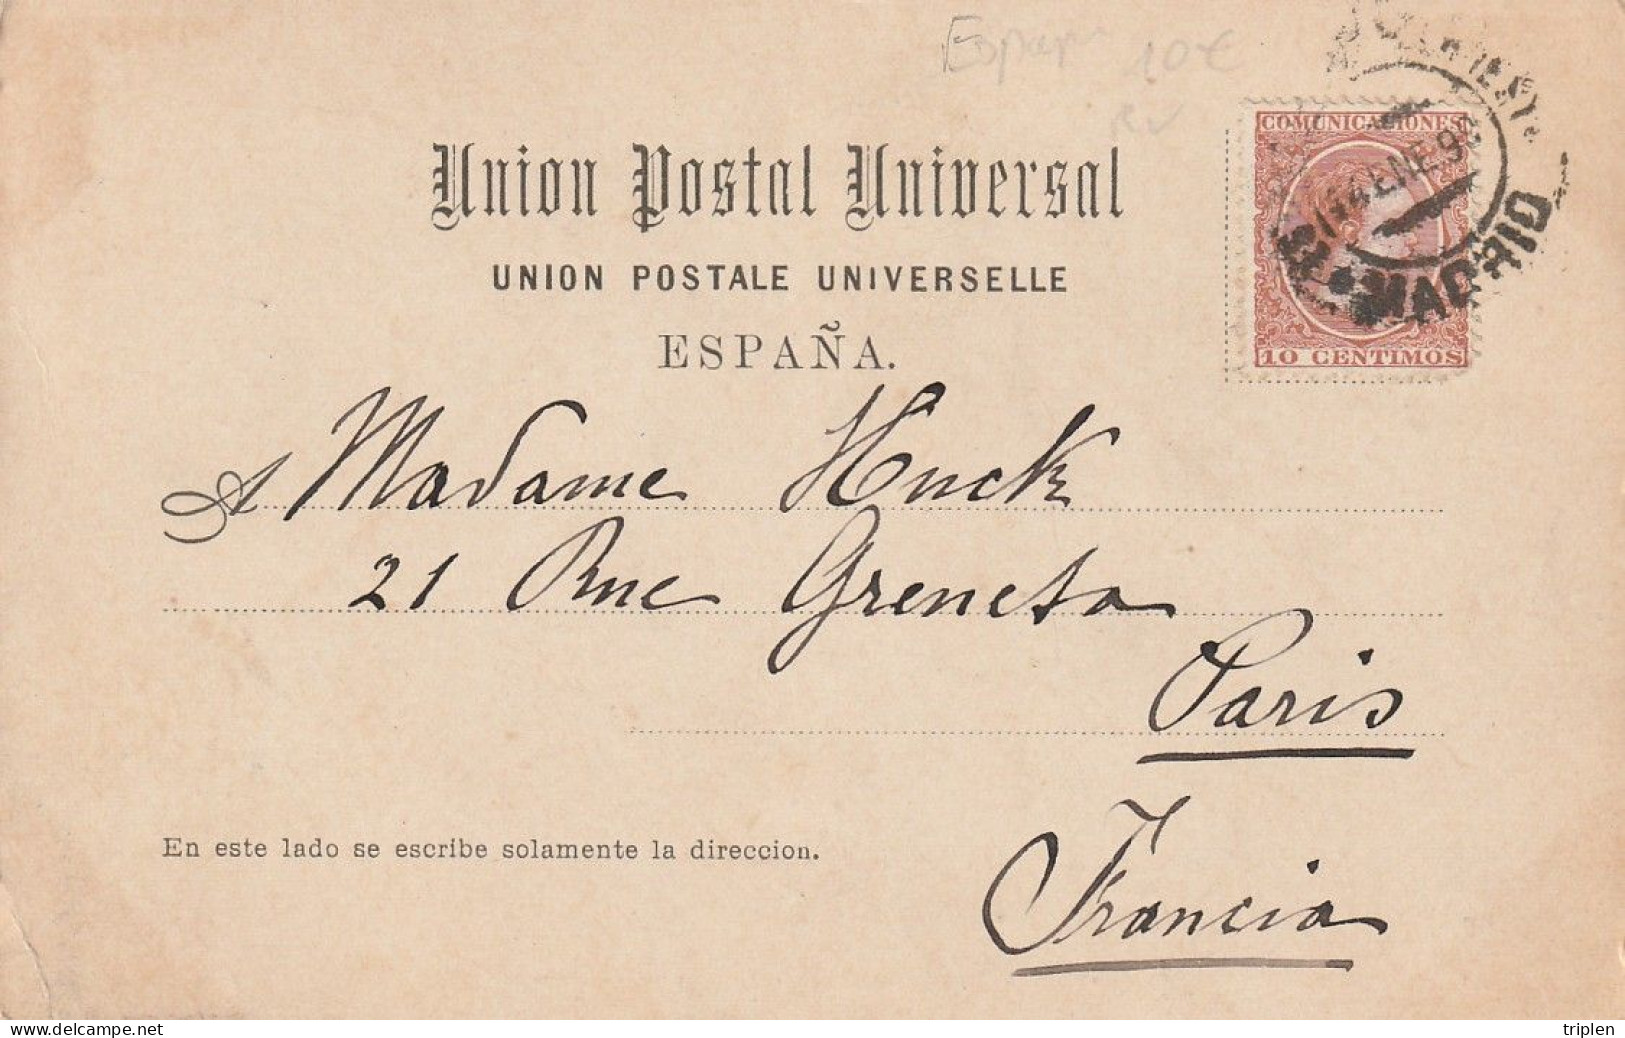 España 10€
COMUNICACIONES
14 ENE 9
MADRID
10 CENTIMOS
Union Postal Universal
UNION POSTALE UNIVERSELLE
ESPAÑA.
A Madame Huck
21 Rue Greneta
Paris
Francia
En este lado se escribe solamente la direccion.
www.delcampe.net
triplen